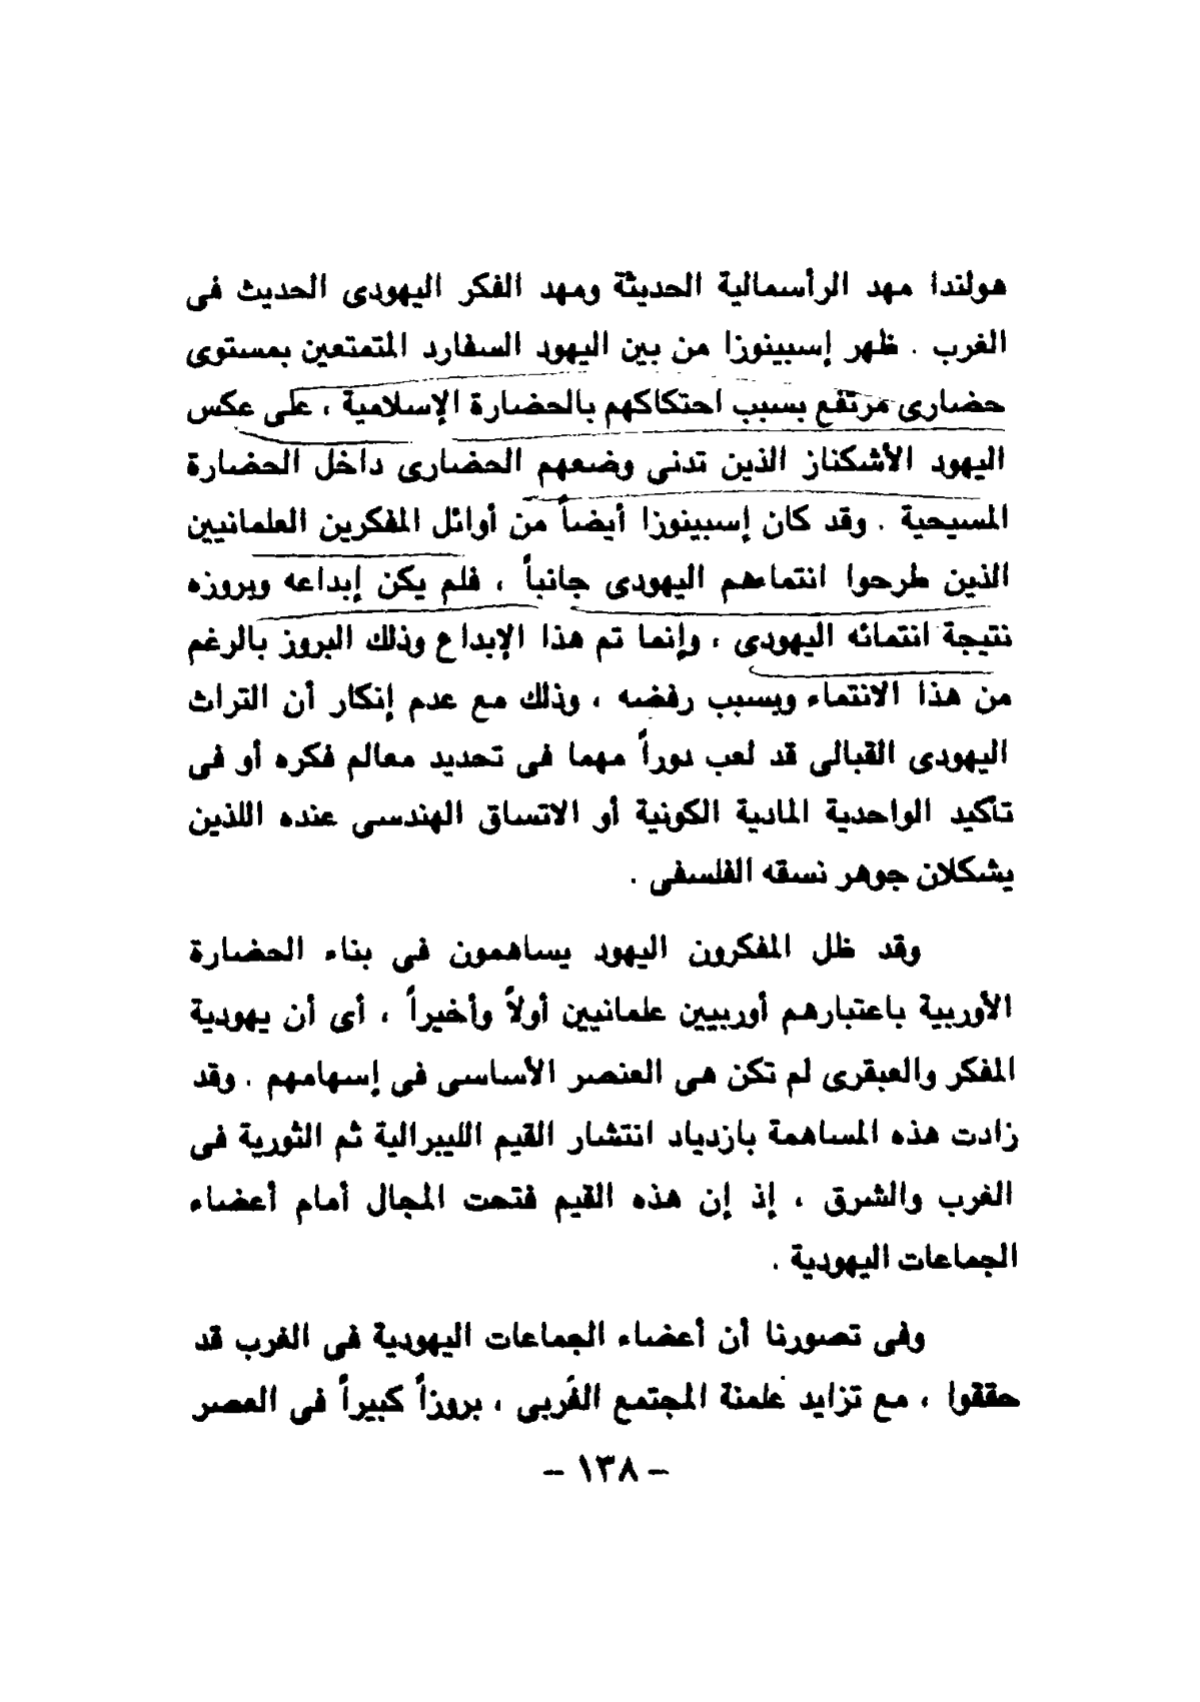 هولندا مهد الرأسمالية الحديثة ومهد الفكر اليهودى الحديث فى
الغرب . ظهر إسبينوزا من بين اليهود السفارد المتمتعين بمستوى
حضارى مرتفع بسبب احتكاكهم بالحضارة الإسلامية ، على عكس
اليهود الأشكناز الذين تدنى وضعهم الحضارى داخل الحضارة
المسيحية . وقد كان إسبينوزا أيضاً من أوائل المفكرين العلمانيين
الذين طرحوا انتماءهم اليهودى جانباً ، فلم يكن إبداعه وبروزه
نتيجة انتمائه اليهودى ، وإنما تم هذا الإبداع وذلك البروز بالرغم
من هذا الانتماء وبسبب رفضه ، وذلك مع عدم إنكار أن التراث
اليهودى القبالى قد لعب دوراً مهما فى تحديد معالم فكره أو فى
تأكيد الواحدية المادية الكونية أو الاتساق الهندسى عنده اللذين
يشكلان جوهر نسقه الفلسفى .
وقد ظل المفكرون اليهود يساهمون فى بناء الحضارة
الأوربية باعتبارهم أوربيين علمانيين أولاً وأخيراً ، أى أن يهودية
المفكر والعبقرى لم تكن هى العنصر الأساسى فى إسهامهم . وقد
زادت هذه المساهمة بازدياد انتشار القيم الليبرالية ثم الثورية فى
الغرب والشرق ، إذ إن هذه القيم فتحت المجال أمام أعضاء
الجماعات اليهودية .
وفى تصورنا أن أعضاء الجماعات اليهودية فى الغرب قد
حققوا ، مع تزايد علمنة المجتمع الغربى ، بروزاً كبيراً فى العصر
- ١٣٨ -